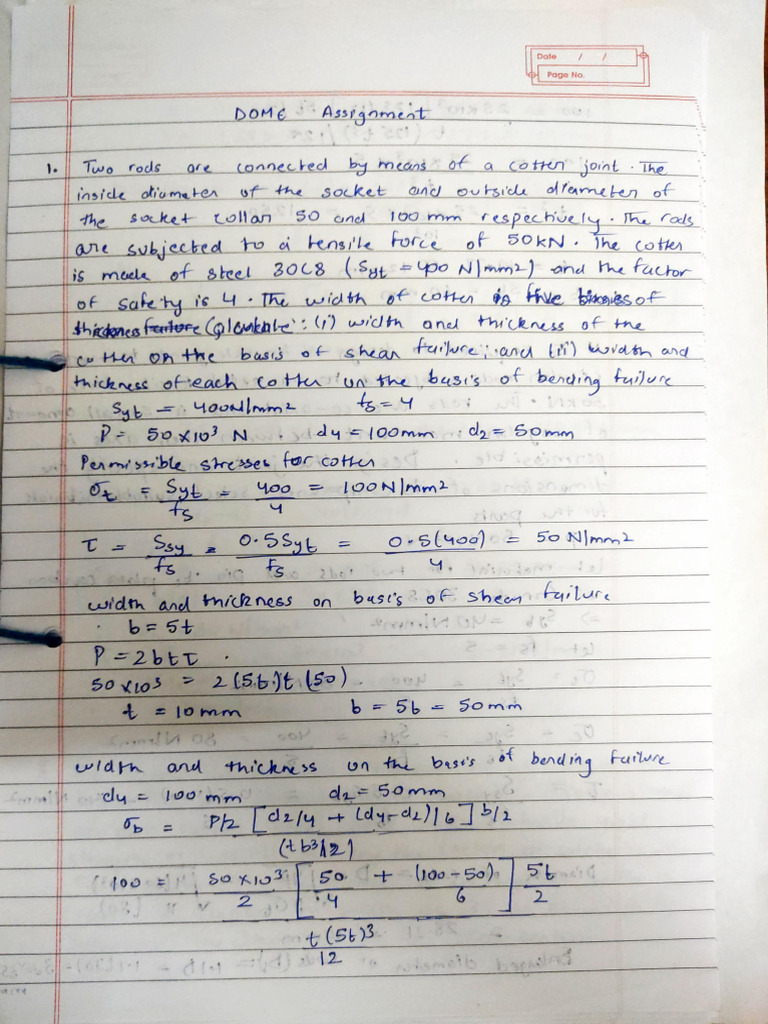 Date / /
Page No.
DOME Assignment
1. Two rods are connected by means of a cotter joint. The
inside diameter of the socket and outside diameter of
the socket collar 50 and 100 mm respectively. The rods
are subjected to a tensile force of 50kN. The cotter
is made of steel 30C8 (Syt = 400 N/mm2) and the factor
of safety is 4. The width of cotter is five times of
thickness (i) width and thickness of the
cotter on the basis of shear failure; and (ii) width and
thickness of each cotter on the basis of bending failure
Syt = 400N/mm2 fs = 4
P = 50 x10³ N . d4 = 100mm d2 = 50mm
Permissible stresses for cotter
σt = Syt/fs = 400/4 = 100N/mm2
τ = Ssy/fs = 0.5Syt/fs = 0.5(400)/4 = 50 N/mm2
width and thickness on basis of shear failure
b = 5t
P = 2btτ .
50 x10³ = 2(5t)t (50).
t = 10mm b = 5t = 50mm
width and thickness on the basis of bending failure
d4 = 100 mm d2 = 50mm
σb = P/2 [d2/4 + (d4-d2)/6] b/2 / (tb³/12)
100 = 50 x10³/2 [50/4 + (100-50)/6] 5t/2 / t(5t)³/12